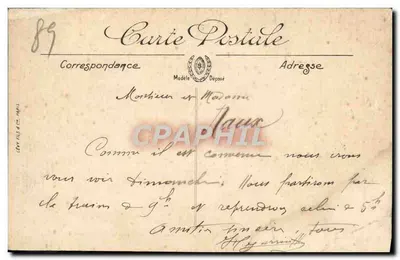 89
Carte Postale
Correspondance
Adresse
Modèle Déposé
Monsieur et Madame
Naux
Comme il est convenu nous irons
vous voir dimanche. Nous partirons par
le train de 9h et reprendrons celui de 5h
Amitiés sincères